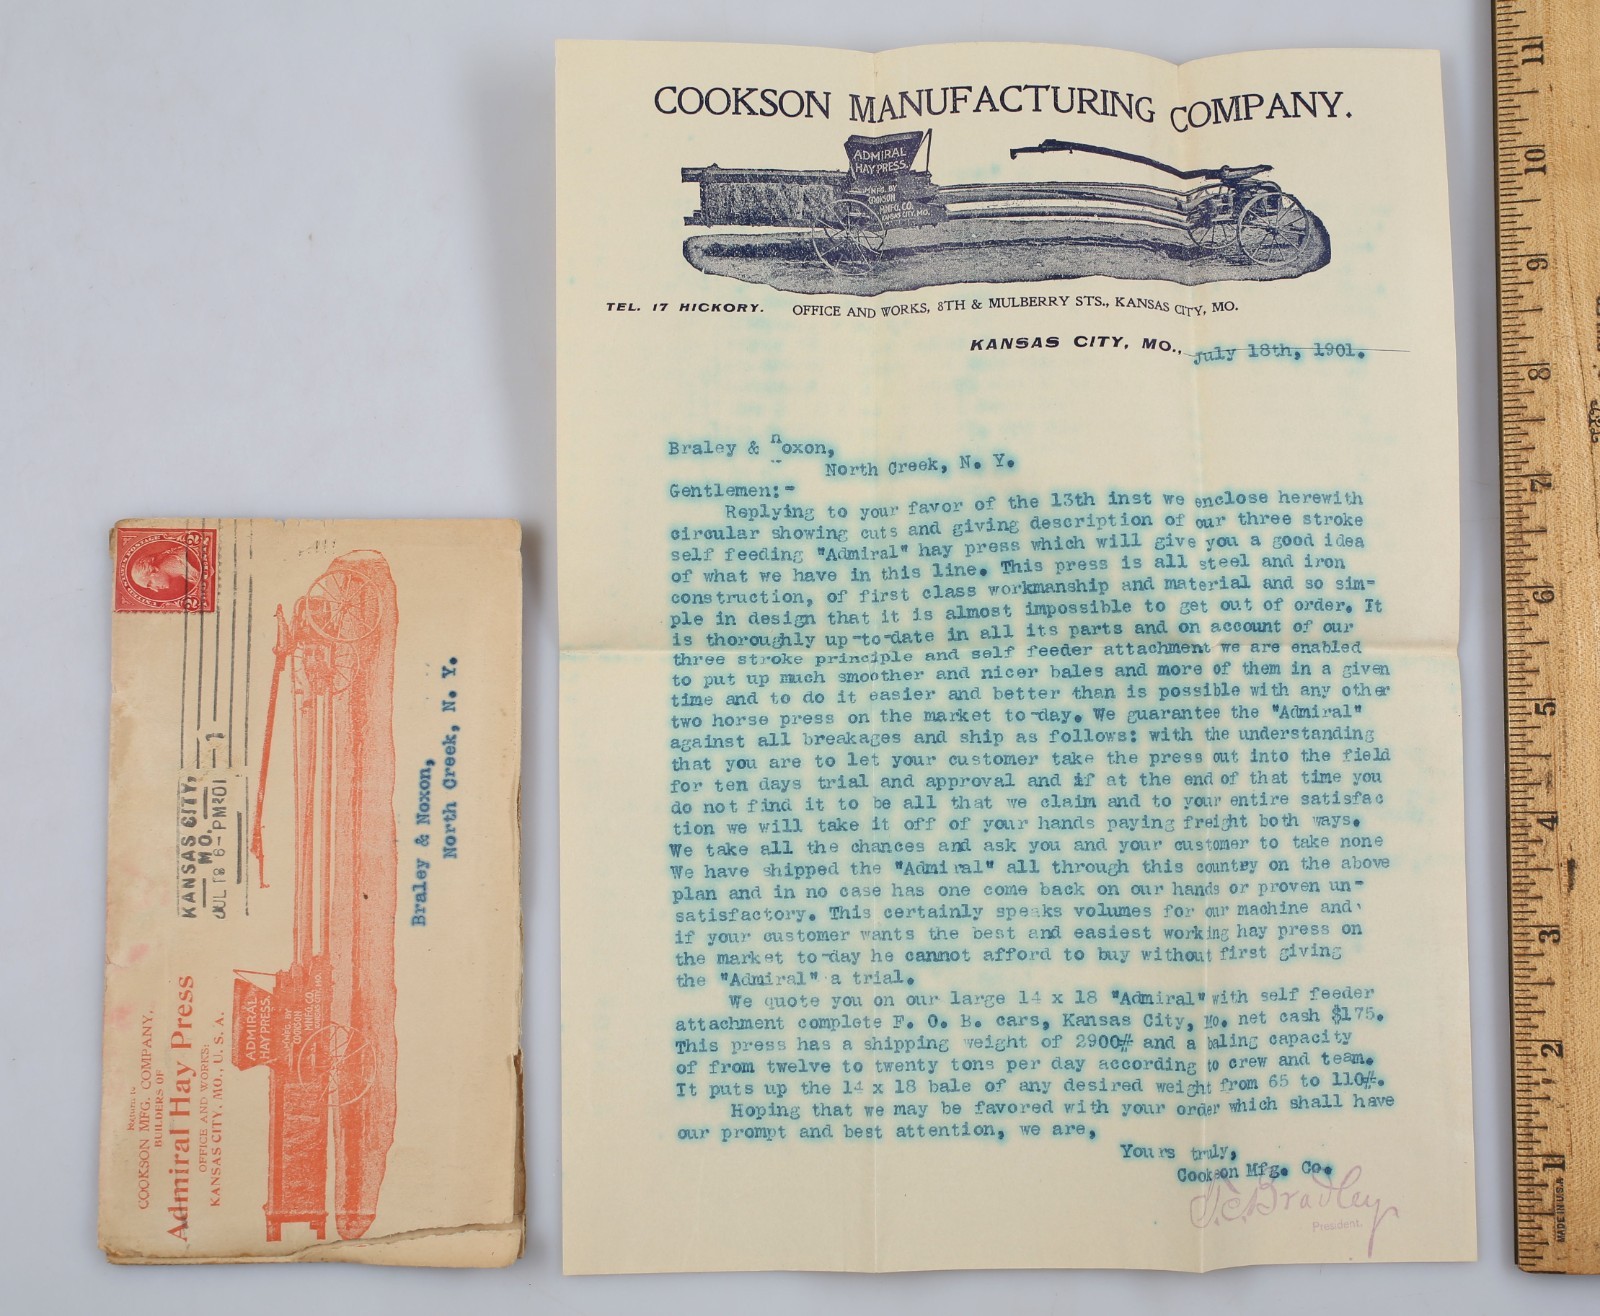 COOKSON MANUFACTURING COMPANY.
ADMIRAL
HAY PRESS.
MFG. BY
COOKSON
MNFG. CO.
KANSAS CITY, MO.
TEL. 17 HICKORY. OFFICE AND WORKS, 8TH & MULBERRY STS., KANSAS CITY, MO.
KANSAS CITY, MO., July 18th, 1901.
Braley & noxon,
North Creek, N. Y.
Gentlemen:-
Replying to your favor of the 13th inst we enclose herewith
circular showing cuts and giving description of our three stroke
self feeding "Admiral" hay press which will give you a good idea
of what we have in this line. This press is all steel and iron
construction, of first class workmanship and material and so sim-
ple in design that it is almost impossible to get out of order. It
is thoroughly up-to-date in all its parts and on account of our
three stroke principle and self feeder attachment we are enabled
to put up much smoother and nicer bales and more of them in a given
time and to do it easier and better than is possible with any other
two horse press on the market to-day. We guarantee the "Admiral"
against all breakages and ship as follows: with the understanding
that you are to let your customer take the press out into the field
for ten days trial and approval and if at the end of that time you
do not find it to be all that we claim and to your entire satisfac
tion we will take it off of your hands paying freight both ways.
We take all the chances and ask you and your customer to take none
We have shipped the "Admiral" all through this country on the above
plan and in no case has one come back on our hands or proven un-
satisfactory. This certainly speaks volumes for our machine and
if your customer wants the best and easiest working hay press on
the market to-day he cannot afford to buy without first giving
the "Admiral" a trial.
We quote you on our large 14 x 18 "Admiral" with self feeder
attachment complete F. O. B. cars, Kansas City, Mo. net cash $175.
This press has a shipping weight of 2900# and a baling capacity
of from twelve to twenty tons per day according to crew and team.
It puts up the 14 x 18 bale of any desired weight from 65 to 110#.
Hoping that we may be favored with your order which shall have
our prompt and best attention, we are,
Yours truly,
Cookson Mfg. Co.
T.C. Bradley
President.
UNITED STATES POSTAGE
2 2
KANSAS CITY,
MO.
JUL 18 6-PM '01
1
Return to
COOKSON MFG. COMPANY,
BUILDERS OF
Admiral Hay Press
OFFICE AND WORKS:
KANSAS CITY, MO., U. S. A.
ADMIRAL
HAY PRESS.
MFG. BY
COOKSON
MNFG. CO.
KANSAS CITY, MO.
Braley & Noxon,
North Creek, N. Y.
11
10
9
8
7
6
5
4
3
2
1
MADE IN U.S.A.